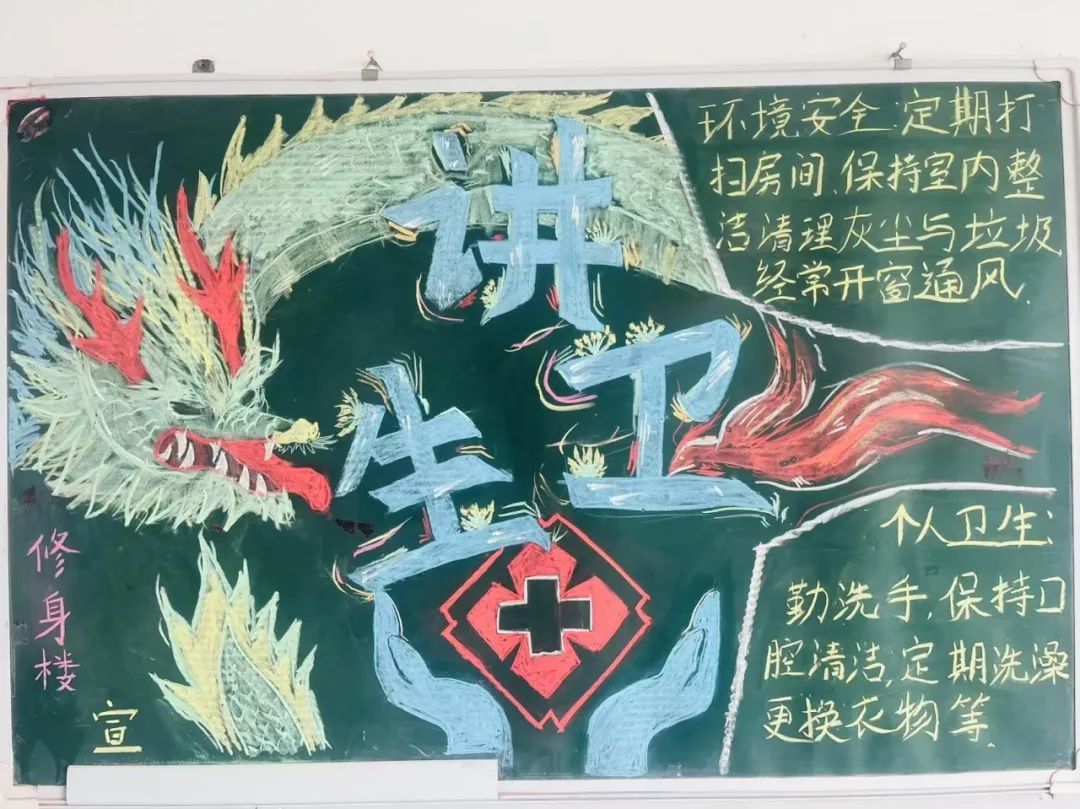 讲
卫
生
环境安全:定期打
扫房间、保持室内整
洁清理灰尘与垃圾
经常开窗通风.
个人卫生:
勤洗手,保持口
腔清洁,定期洗澡
更换衣物等.
修身楼
宣